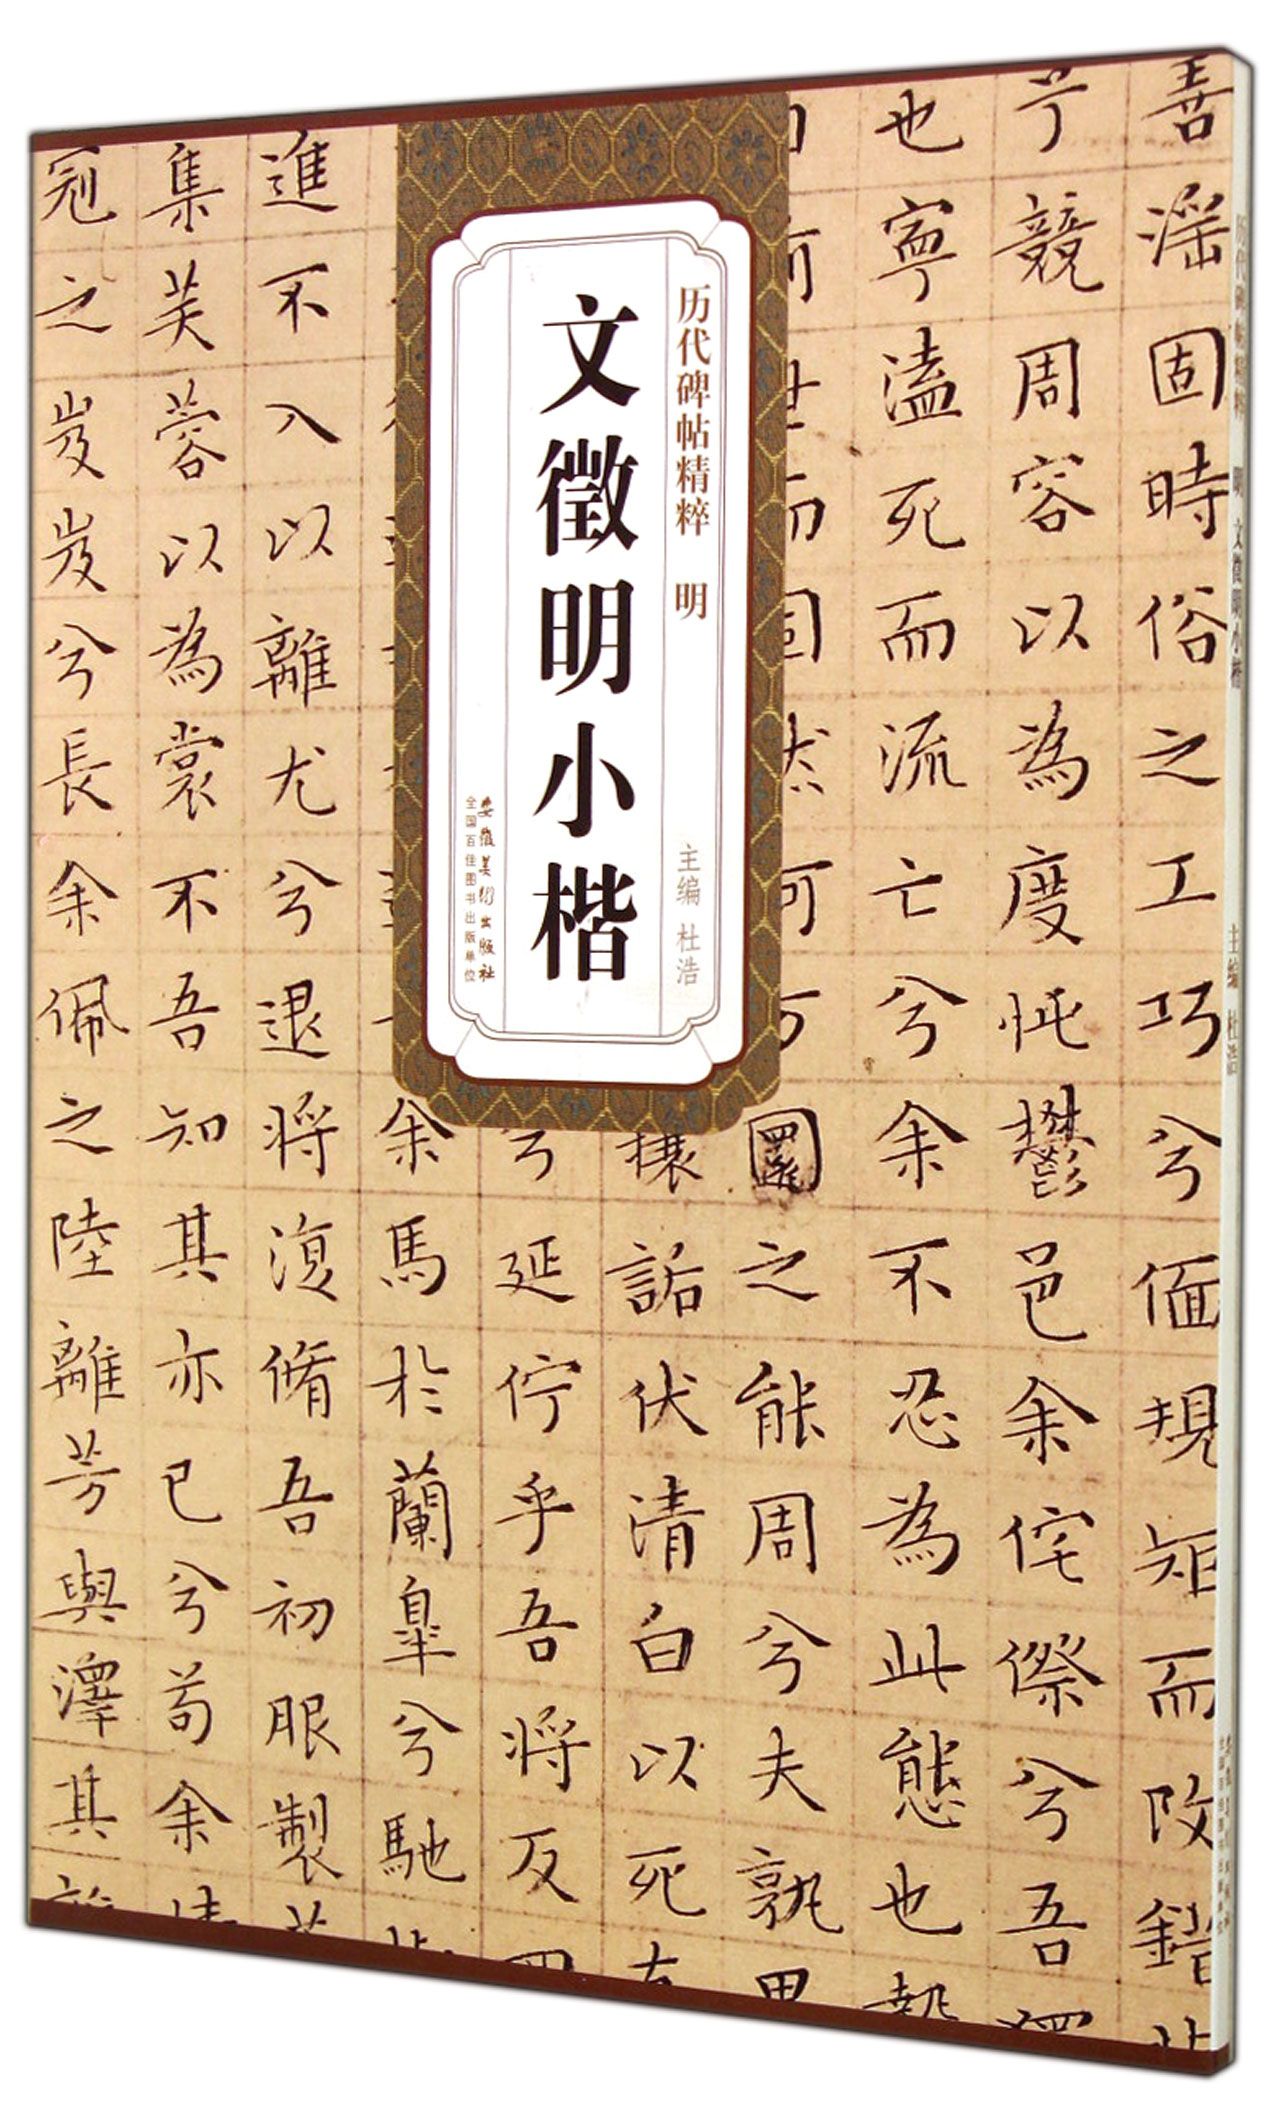 历代碑帖精粹 明
文徵明小楷
主编 杜浩
安徽美术出版社
全国百佳图书出版单位
善滛固時俗之工巧兮偭規矩而攺錯
兮競周容以為度忳鬱邑余侘傺兮吾
也寧溘死而流亡兮余不忍為此態也
圜之能周兮夫孰
攘詬伏清白以死
兮延佇乎吾将反
余馬於蘭臯兮馳
進不入以離尤兮退将復脩吾初服製
集芙蓉以為裳不吾知其亦已兮苟余
冠之岌岌兮長余佩之陸離芳與澤其
历代碑帖精粹 明 文徵明小楷 主编 杜浩